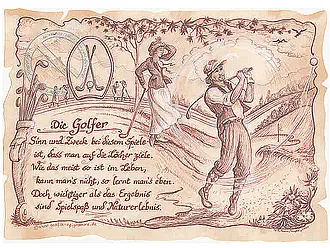 Die Golfer
Sinn und Zweck bei diesem Spiele
ist, dass man auf die Löcher ziele.
Wie das meist so ist im Leben,
kann man's nicht, so lernt man's eben.
Doch wichtiger als das Ergebnis
sind Spielspaß und Naturerlebnis.